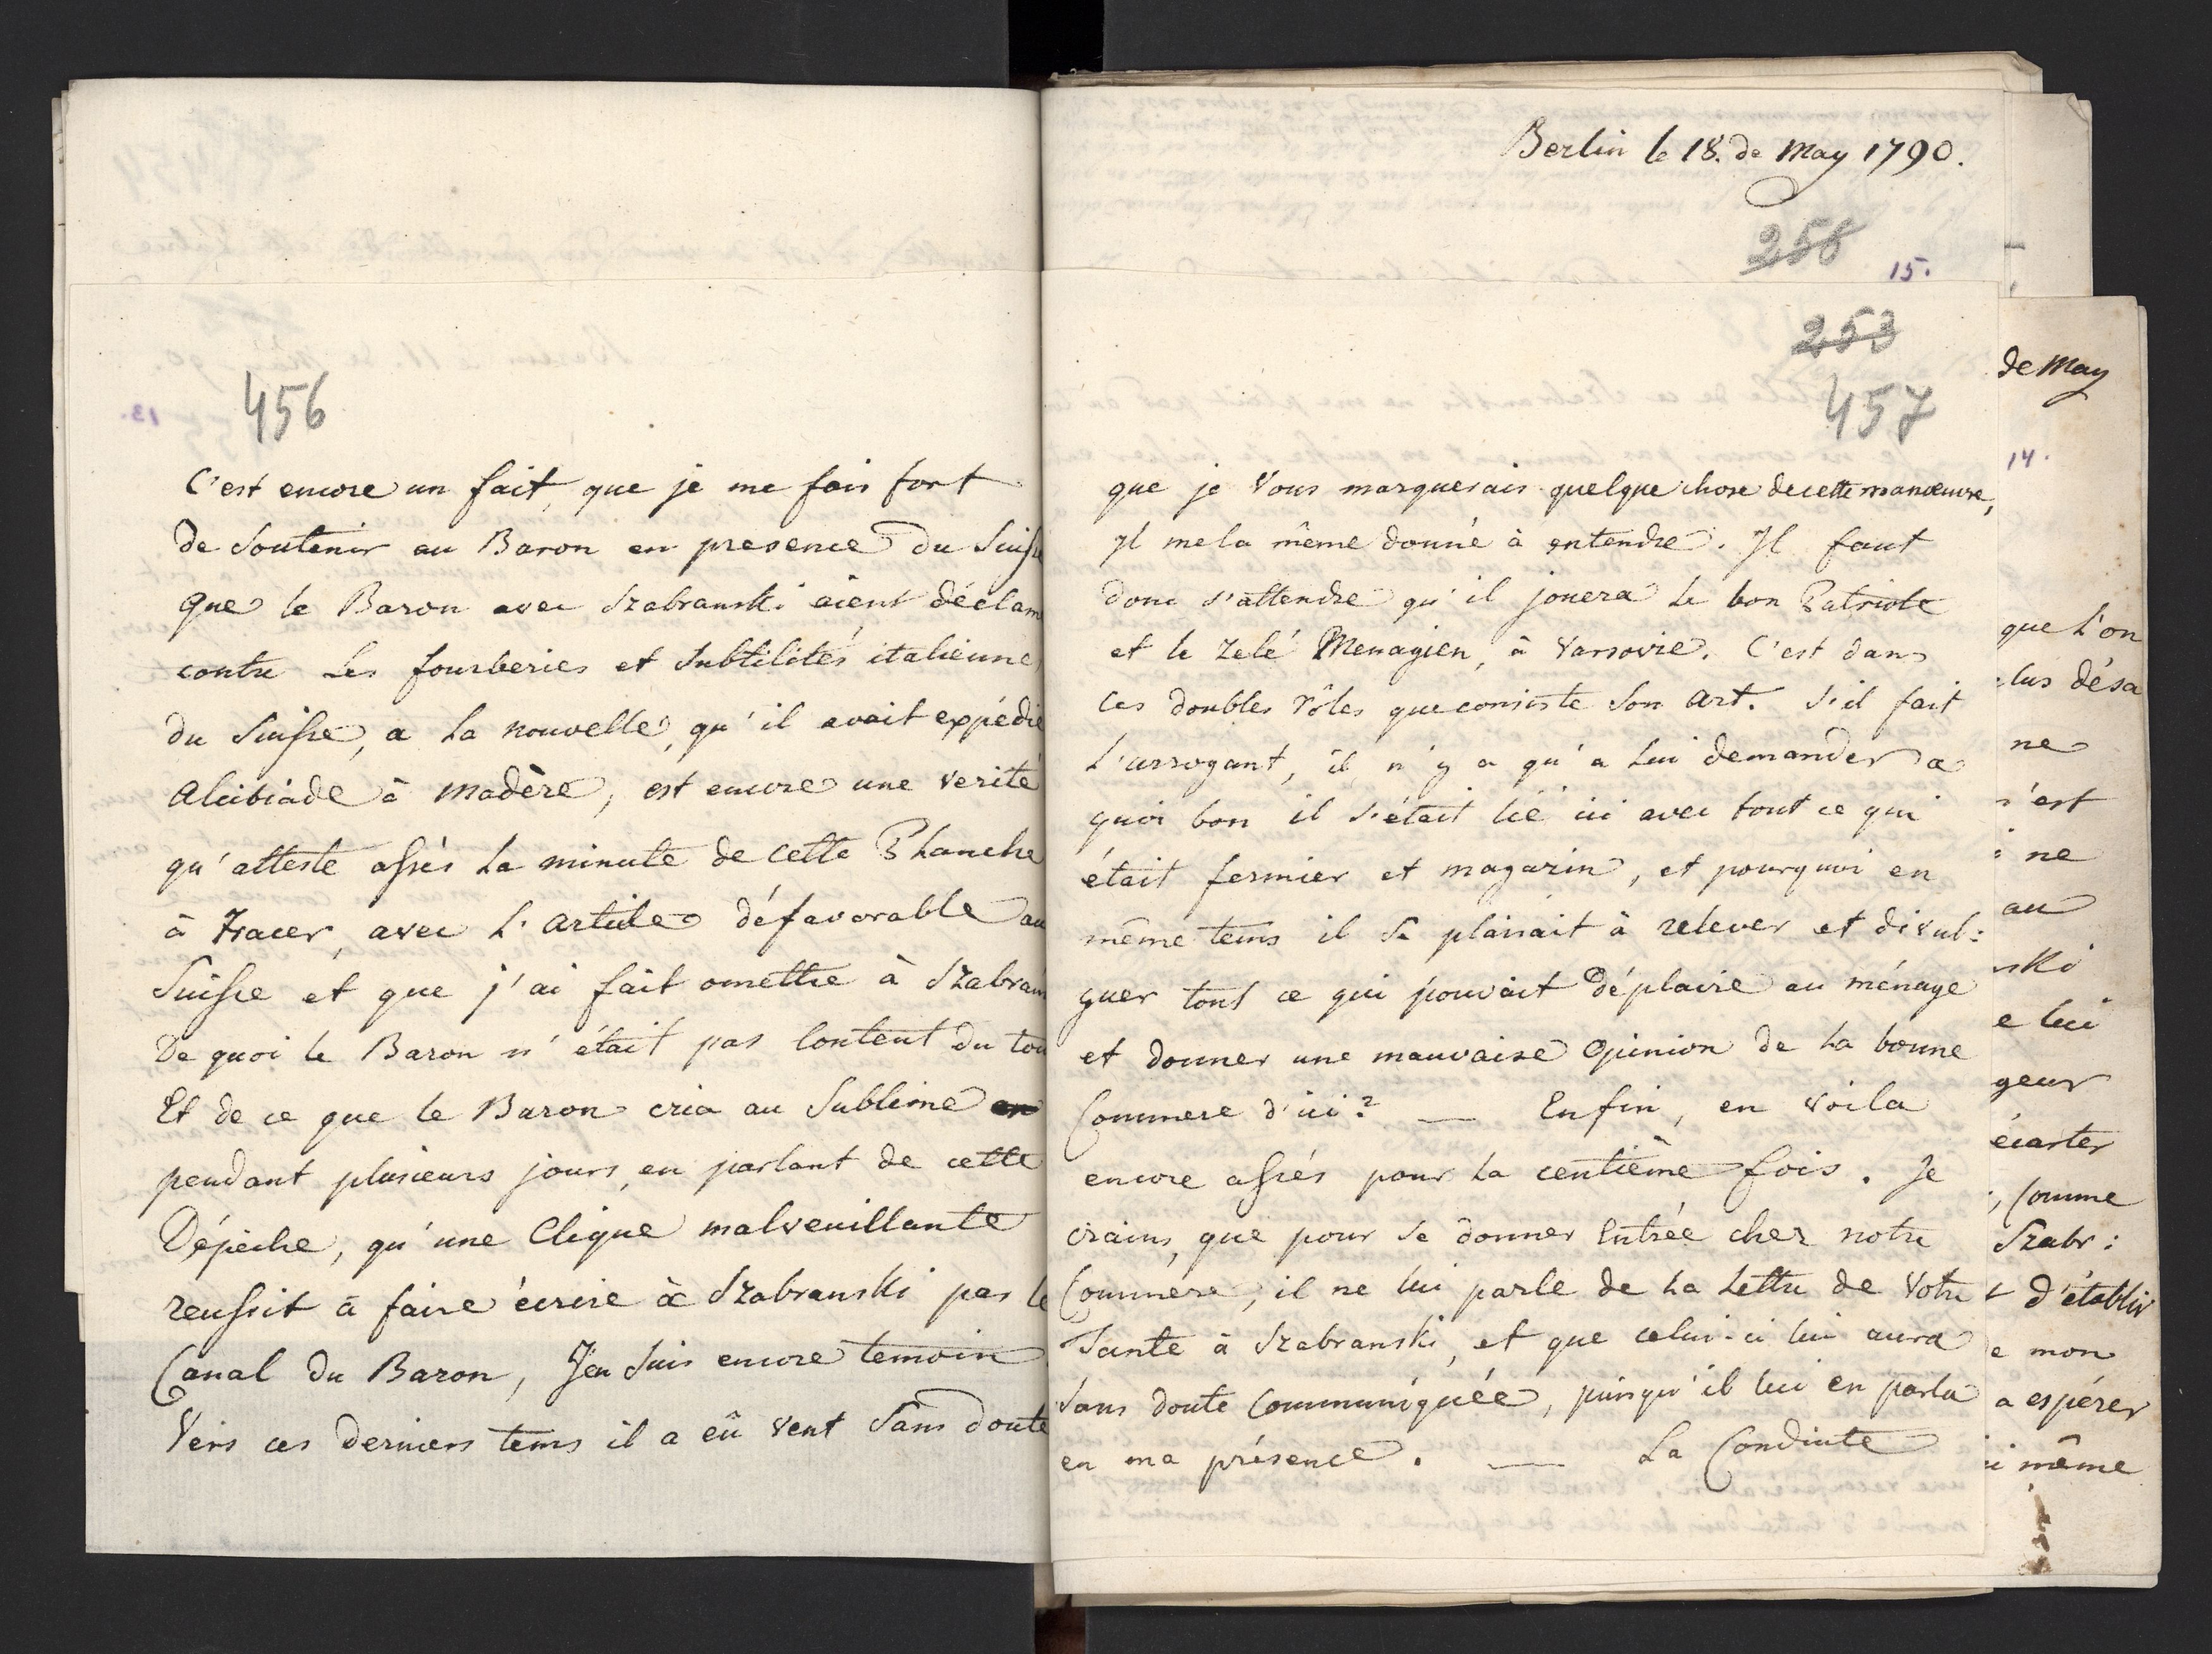 456
C'est encore un fait, que je me fais fort
de Soutenir au Baron en presence du Suisse
Que le Baron avec Szabranski aient déclam
contre Les fourberies et Subtilités italiennes
du Suisse, a La nouvelle, qu'il avait expédié
Alcibiade à Madère, est encore une Verité
qu'atteste assés La minute de cette Blanche
à Tracer, avec L'article défavorable au
Suisse et que j'ai fait omettre à Szabran
De quoi le Baron n'était pas Content du tou
Et de ce que le Baron cria au Sublime
pendant plusieurs jours, en parlant de cette
Dépêche, qu'une Clique malveuillante
reussit à faire écrire à Szabranski par le
Canal du Baron, J'en Suis encore temoin
Vers ces derniers tems il a eû vent Sans doute
Berlin le 18. de May 1790.
256
15.
253
457
que je Vous marquerais quelque chose de cette manœuvre,
Il me la même donné à entendre. Il faut
donc s'attendre qu'il jouera le bon Patriote
et le Zelé Menagien, à Varsovie. C'est dans
ces doubles rôles que consiste Son art. S'il fait
L'arrogant, il n'y a qu'a Lui demander a
quoi bon il s'était lié ici avec tout ce qui
était fermier et magazin, et pourquoi en
même tems il Se plaisait à relever et divul:
guer tout ce qui pouvait déplaire au ménage
et donner une mauvaise Opinion de La bonne
Commere d'ici? — Enfin, en Voila
encore assés pour La centième fois. Je
crains, que pour Se donner Entrée chez notre
Commere, il ne lui parle de La Lettre de Votre
Tante à Szabranski, et que celui-ci lui aura
Sans doute Communiquée, puisqu'il lui en parla
en ma présence. — La Conduite
de May
14.
que L'on
lus désa
ne
n'est
ne
au
ski
e lui
geur
écarter
, Comme
Szabr:
d'établir
e mon
a espérer
i même